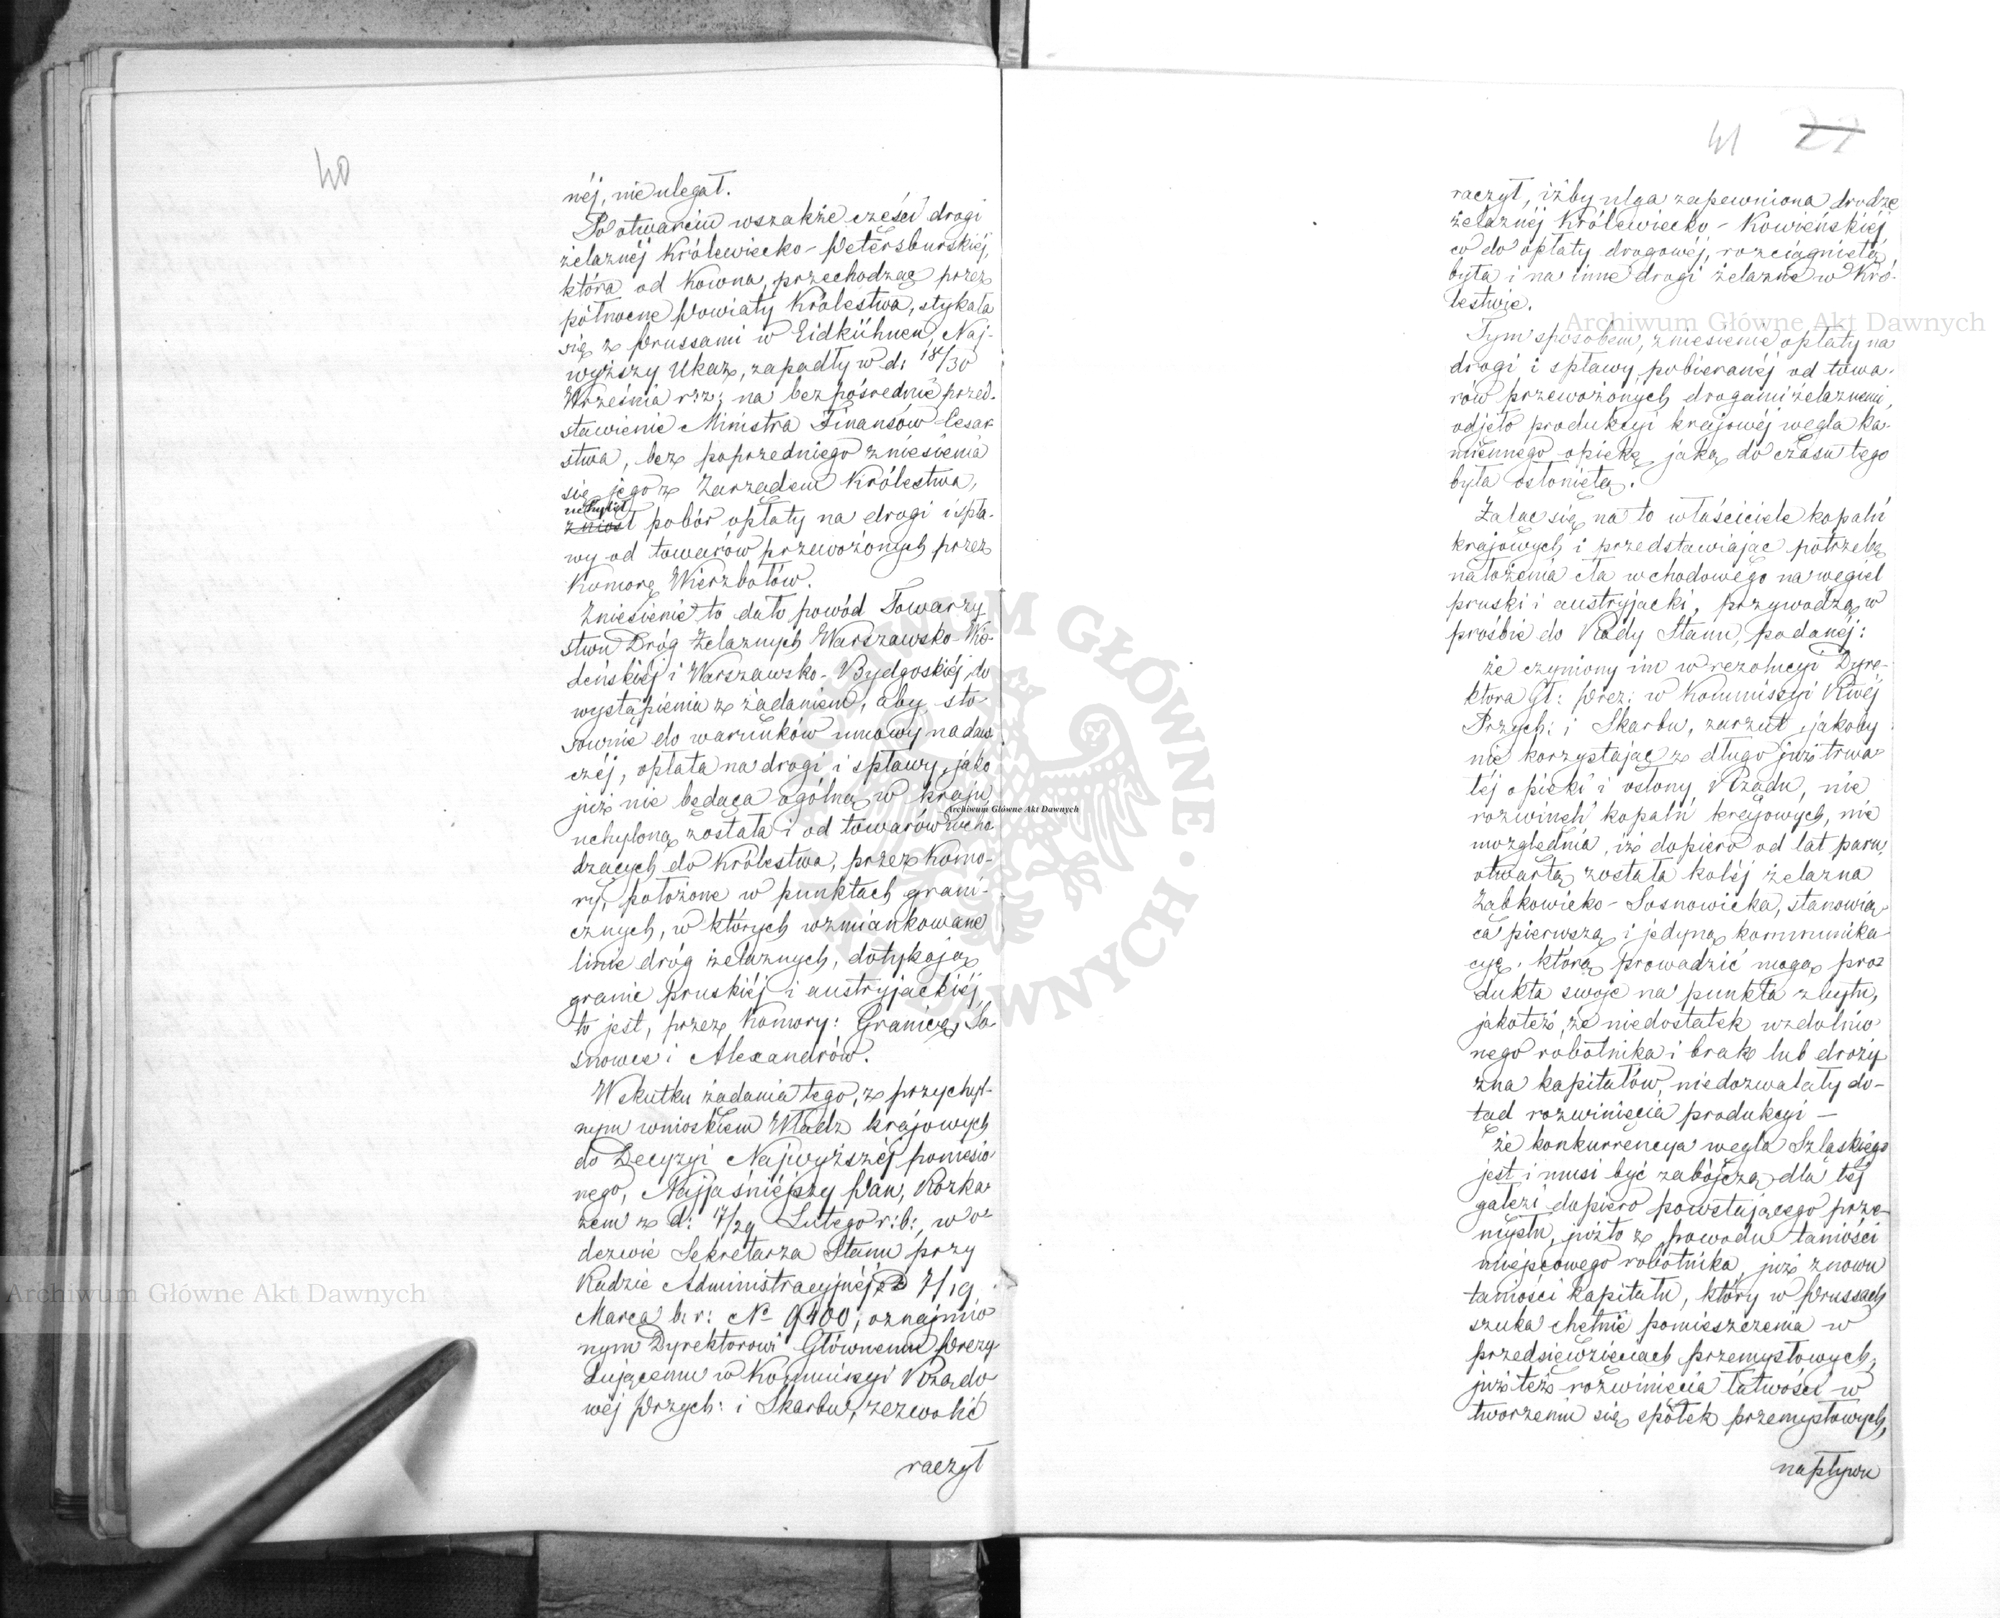 40
néj, nie ulegał.
Po otwarciu wszakże części drogi
żelaznéj Królewiecko-Petersburskiéj,
która od Kowna, przechodząc przez
północne Powiaty Królestwa, stykała
się z Prussami w Eidkühnen, Naj-
wyższy Ukaz, zapadły w d: 18/30
Września r:z: na bezpośrednie przed-
stawienie Ministra Finansów Cesar
stwa, bez poprzedniego zniesienia
się jego z Zarządem Królestwa,
uchylił
zniosł pobór opłaty na drogi i spła-
wy od towarów przewożonych przez
Komorę Wierzbołów.
Zniesienie to dało powód Towarzy
stwu Dróg Żelaznych Warszawsko-Wie-
deńskiéj i Warszawsko-Bydgoskiéj, do
wystąpienia z żądaniem, aby sto
sownie do warunków umowy nadaw
czéj, opłata na drogi i spławy, jako
już nie będąca ogólną w kraju,
uchyloną została i od towarów wcho
dzących do Królestwa, przez Komo-
ry, położone w punktach grani-
cznych, w których wzmiankowane
linie dróg żelaznych, dotykają
granic pruskiéj i austryjackiéj,
to jest, przez Komory: Granica, So-
snowce i Alexandrów.
W skutku żądania tego, z przychyl-
nym wnioskiem Władz krajowych
do Decyzyi Najwyższéj poniesio
nego, Najjaśniejszy Pan, Rozka
zem z d: 17/29 Lutego r:b:, w o
dezwie Sekretarza Stanu przy
Radzie Administracyjnéj z 7/19
Marca b:r: No 9400, oznajmio
nym Dyrektorowi Głównemu Prezy
dującemu w Kommissyi Rządo
wéj Przych: i Skarbu, zezwolić
raczył
41 27
raczył, iżby ulga zapewniona drodze
żelaznéj Królewiecko-Kowieńskiéj
co do opłaty drogowéj, rozciągniętą
była i na inne drogi żelazne w Kró-
lestwie.
Tym sposobem, zniesienie opłaty na
drogi i spławy, pobieranéj od towa-
rów przewożonych drogami żelaznemi,
odjęło produkcyi krajowéj węgla ka-
miennego opiekę, jaką do czasu tego
była osłoniętą.
Żaląc się na to właściciele kopalń
krajowych i przedstawiając potrzebę
nałożenia cła wchodowego na węgiel
pruski i austryjacki, przywodzą w
prośbie do Rady Stanu, podanéj:
że czyniony im w rezolucyi Dyre-
ktora Gł: Prez: w Kommissyi Rwéj
Przych: i Skarbu, zarzut, jakoby
nie korzystając z długo już trwa
łéj opieki i osłony Rządu, nie
rozwinęli kopalń krajowych, nie
uwzględnia, iż dopiero od lat paru,
otwartą została kolej żelazna
Ząbkowicko-Sosnowicka, stanowią
ca pierwszą i jedyną kommunika
cyę, którą prowadzić mogą pro
dukta swoje na punkta zbytu,
jakoteż, że niedostatek uzdolnio
nego robotnika i brak lub droży
zna kapitałów, niedozwalały do-
tąd rozwinięcia produkcyi —
że konkurrencya węgla Szląskiego
jest i musi być zabójczą dla téj
gałęzi dopiero powstającego prze-
mysłu, już to z powodu taniości
miejscowego robotnika, już znowu
taniości kapitału, który w Prussach
szuka chętnie pomieszczenia w
przedsięwzięciach przemysłowych,
już też rozwinięcia łatwości w
tworzeniu się spółek przemysłowych,
napływu
Archiwum Główne Akt Dawnych
Archiwum Główne Akt Dawnych
Archiwum Główne Akt Dawnych
ARCHIWUM GŁÓWNE AKT DAWNYCH